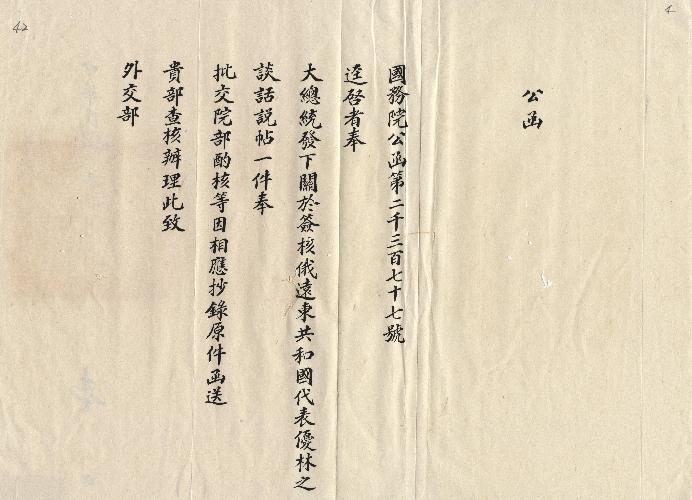 公函
國務院公函第二千三百七十七號
逕啓者奉
大總統發下關於簽核俄遠東共和國代表優林之
談話説帖一件奉
批交院部酌核等因相應抄錄原件函送
貴部查核辦理此致
外交部
42
4